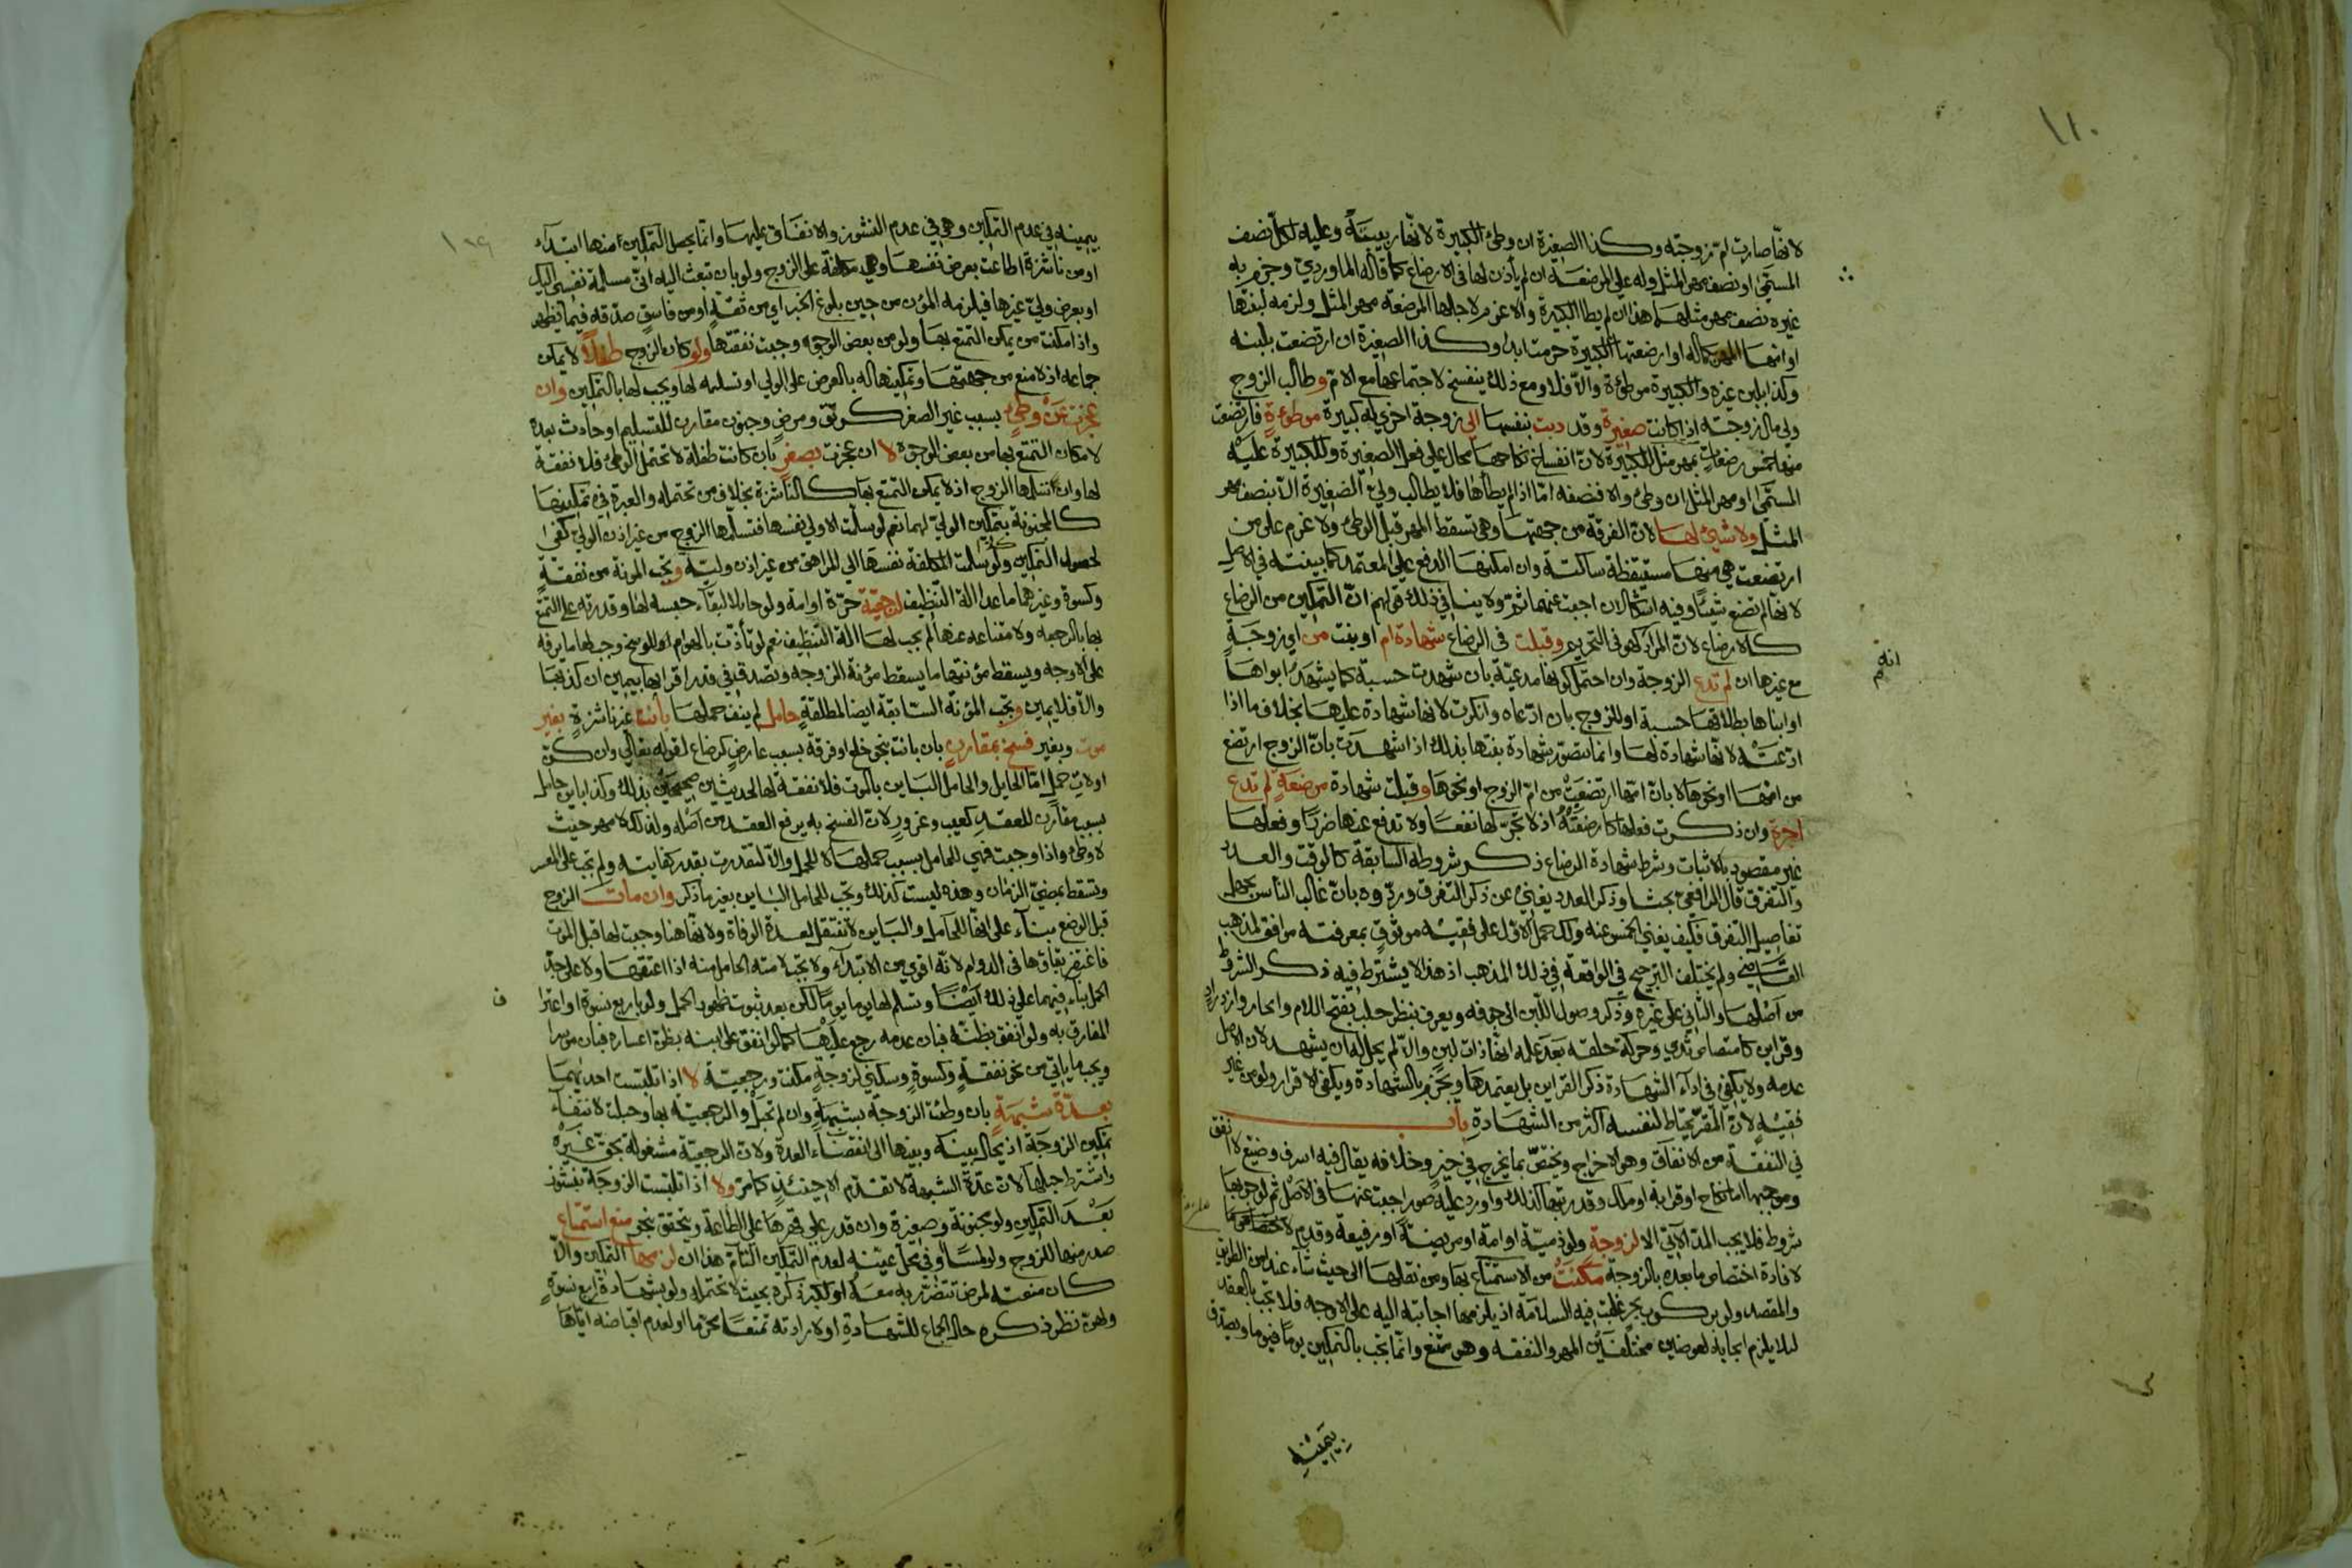 ١١٠
لانها صارت ام زوجته وكذا الصغيرة ان وطئ الكبيرة لانها ربيبته وعليه لكل نصف
المسمى او نصف مهر المثل وله على المرضعة ان لم يأذن لها في الارضاع كما قاله الماوردي وجزم به
غيره نصف مهر مثلهما هذا ان لم يطا الكبيرة والا غرم لاجلها المرضعة مهر المثل ولزمه لبنتها
او امها المهر بكماله او ارضعتها الكبيرة حرمت ابدا وكذا الصغيرة ان ارتضعت بلبنه
وكذا بلبن غيره والكبيرة موطوءة والا فلا ومع ذلك ينفسخ لاجتماعها مع الام وطالب الزوج
ولي مال زوجته اذا كانت صغيرة وقد دبت بنفسها الى زوجة اخرى له كبيرة موطوءة فارتضعت
منها خمس رضعات بمهر مثل الكبيرة لان انفساخ نكاحها محال على فعل الصغيرة وللكبيرة عليه
المسمى او مهر المثل ان وطئ والا فنصفه اما اذا لم يطأها فلا يطالب ولي الصغيرة الا بنصف مهر
المثل ولا شئ لها لان الفرقة من جهتها وهي تسقط المهر قبل الوطئ ولا غرم على من
ارتضعت هي منها مستيقظة ساكتة وان امكنها الدفع على المعتمد كما بينته في الاصل
لانها لم تصنع شيئا وفيه اشكالان اجبت عنهما ثم ولا ينافي ذلك قولهم ان التمكين من الرضاع
كالارضاع لان المراد كهو في التحريم وقبلت في الرضاع شهادة ام او بنت من اي زوجة
انه م
مع غيرها ان لم تدع الزوجة وان احتمل كونها مدعية بان شهدت حسبة كما يشهد ابواها
او ابناها بطلاقها حسبة او للزوج بان ادعاه وانكرت لانها شهادة عليها بخلاف ما اذا
ادعته لانها شهادة لها وانما يتصور شهادة بنتها بذلك اذا شهدت بان الزوج ارتضع
من امها او نحوها لا بان امها ارتضعت من ام الزوج او نحوها وقبلت شهادة مرضعة لم تدع
اجرة وان ذكرت فعلها كارضعته اذ لا تجر لها نفعا ولا تدفع عنها ضررا وفعلها
غير مقصود بالاثبات وشرط شهادة الرضاع ذكر شروطه السابقة كالوقت والعدد
والتفرق قال الرافعي بحثا وذكر العدد يغني عن ذكر التفرق وردوه بان غالب الناس يجهل
تفاصيل التفرق فكيف يغني الخمس عنه ولك حمل الاول على فقيه موثوق بمعرفته موافق لمذهب
القاضي ولم يختلف الترجيح في الواقعة في ذلك المذهب اذ هذا لا يشترط فيه ذكر الشروط
من اصلها والثاني على غيره وذكر وصول اللبن الى جوفه ويعرف بنظر حلب بفتح اللام وايجار وازدراد
وقراين كامتصاص ثدي وحركة حلقه بعد علمه انها ذات لبن والا لم يحل له ان يشهد لان الاصل
عدمه ولا يكفي في ادآء الشهادة ذكر القراين بل يعتمدها ويجزم بالشهادة ويكفي الاقرار ولو من غير
فقيه لان المقر يحتاط لنفسه اكثر من الشهادة باب
في النفقة من الانفاق وهو الاخراج ويختص بما يخرج في خير وخلافه يقال فيه اسرف وضيع لا انفق
وموجبها اما نكاح او قرابة او ملك وقد رتبها كذلك واورد عليه صور اجبت عنها في الاصل ثم لوجوبها
شروط فلا يجب المد الآتي الا لزوجة ولو ذمية او امة او مريضة او رفيعة وقدم
لافادة اختصاص ما بعده بالزوجة مكنت من الاستمتاع بها ومن نقلها الى حيث شاء عند امن الطريق
والمقصد ولو بركوب بحر غلبت فيه السلامة اذ يلزمها اجابته اليه على الاوجه فلا تجب بالعقد
لئلا يلزم ايجابه لعوضين مختلفين المهر والنفقة وهو ممتنع وانما تجب بالتمكين يوما فيوما ويصدق
بيمينه
بيمينه في عدم التمكين وهي في عدم النشوز والانفاق عليها وانما يحصل التمكين منها ابتداء
او من ناشزة اطاعت بعرض نفسها وهي مكلفة على الزوج ولو بان تبعث اليه اني مسلمة نفسي اليك
او بعرض ولي غيرها فيلزمه المؤن من حين بلوغ الخبر اي من ثقة او من فاسق صدقه فيما يظهر
واذا مكنت من يمكن التمتع بها ولو من بعض الوجوه وجبت نفقتها ولو كان الزوج طفلا لا يمكن
جماعه اذ لا منع من جهتها وتمكينها له بالعرض على الولي او تسلمه لها ويجب لها بالتمكين وان
عجزت عن وطئ بسبب غير الصغر كرتق ومرض وجنون مقارن للتسليم او حادث بعده
لامكان التمتع بها من بعض الوجوه لا ان عجزت بصغر بان كانت طفلة لا تحتمل الوطئ فلا نفقة
لها وان تسلمها الزوج اذ لا يمكن التمتع بها كالناشزة بخلاف من تحتمله والعبرة في تمكينها
كالمجنونة بتمكين الولي لهما نعم لو سلمت الاولى نفسها فتسلمها الزوج من غير اذن الولي كفى
لحصول التمكين وكذا لو سلمت المكلفة نفسها الى المراهق من غير اذن وليه وتجب المؤنة من نفقة
وكسوة وغيرهما ما عدا آلة التنظيف لرجعية حرة او امة ولو حايلا لبقاء حبسه لها وقدرته على التمتع
بها بالرجعة ولامتناعه عنها لم يجب لها آلة التنظيف نعم لو تأذت بالهوام او للوسخ وجب لها ما يرفه
على الاوجه ويسقط مؤنتها ما يسقط مؤنة الزوجة وتصدق في قدر اقرائها بيمين ان كذبها
والا فلا يمين وتجب المؤنة السابقة ايضا لمطلقة حامل لم ينف حملها بائنة غير ناشزة بغير
موت وبغير فسخ بمقارن بان بانت بنحو خلع او فرقة بسبب عارض كرضاع لقوله تعالى وان كن
اولات حمل اما الحايل والحامل البائن بالموت فلا نفقة لها لحديثين صحيحين بذلك وكذا باين حامل
بسبب مقارن للعقد كعيب وغرور لان الفسخ به يرفع العقد من اصله ولذلك لا مهر حيث
لا وطئ واذا وجبت فهي للحامل بسبب حملها لا للحمل والا لتقدرت بقدر كفايته ولم تجب على المعسر
وتسقط بمضي الزمان وهذه ليست كذلك وتجب للحامل الباين بغير ما ذكر وان مات الزوج
قبل الوضع بناء على انها للحامل والباين لا تنتقل لعدة الوفاة ولانها هنا وجبت لها قبل الموت
فاغتفر بقاؤها في الدوام لانه اقوى من الابتدآء ولا تجب لامته الحامل منه اذا اعتقها ولا على جد
الحمل بناء فيهما على ذلك ايضا وتسلم لها يوما يوما لكن بعد ثبوت ظهور الحمل ولو باربع نسوة او اعترا
ف
المفارق به ولو انفق بظنه فبان عدمه رجع عليها كما لو انفق على ابنه بظن اعساره فبان موسرا
ويجب ما ياتي من نحو نفقة وكسوة وسكنى لزوجة مكنت ورجعية لا اذا تلبست احداهما
بعدة شبهة بان وطئت الزوجة بشبهة وان لم تحبل والرجعية بها وحبلت لانتفاء
تمكين الزوجة اذ يحال بينه وبينها الى انقضاء العدة ولان الرجعية مشغولة بحق غيره
واشترط حبلها لان عدة الشبهة لا تقدم الا حينئذ كما مر ولا اذا تلبست الزوجة بنشوز
بعد التمكين ولو مجنونة وصغيرة وان قدر على قهرها على الطاعة ويتحقق بنحو منع استمتاع
صدر منها للزوج ولو لمسا او في محل عينه لعدم التمكين التام هذا ان لزمها التمكين والا
كان منعته لمرض تتضرر به معه او لكبر ذكره بحيث لا تحتمله ولو بشهادة اربع نسوة
ولهن نظر ذكره حال الجماع للشهادة او لارادته تمتعا محرما او لعدم اقباضه اياها